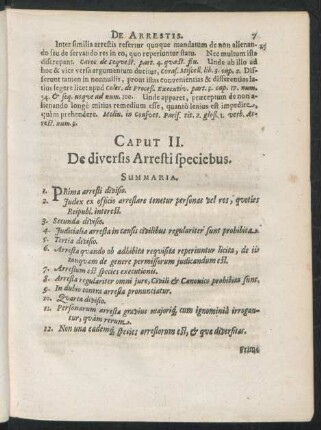 DE ARRESTIS. 7
Inter similia arrestis refertur quoque mandatum de non alienan-
do seu de servando res in eo, quo reperiuntur statu. Nec multum ista
discrepant. Curec de sequest. part. 4. quæst. fin. Unde ab illo ad
hoc & vice versa argumentum docitur,
ferunt tamen in nonnullis, prout istas convenientias & differentias la-
tius legere licet apud Coler. de Process. Executiv. part. 3. cap. 17. num.
54. & seq. usque ad num. 100. Unde apparet, præceptum de non a-
lienando longè mitius remedium esse, quantò lenius est impedire,
quàm prehendere. Molin. in Consuet. Paris. tit. 2. gloss. 1. verb. Ar-
rest. num. 5.
CAPUT II.
De diversis Arresti speciebus.
SUMMARIA.
1. PRima arresti divisio.
2. Judex ex officio arrestare tenetur personas vel res, quoties
Reipubl. interest.
3. Secunda divisio.
4. Judicialia arresta in causis civilibus regulariter sunt prohibita.
5. Tertia divisio.
6. Arresta quando ob adhibita requisita reperiuntur licita, de iis
tanquam de genere permissorum judicandum est.
7. Arrestum est species executionis.
8. Arresta regulariter omni jure, Civili & Canonico prohibita sunt.
9. In dubio contra arresta pronunciatur.
10. Quarta divisio.
11. Personarum arresta gravius majoriq́; cum ignominiâ irrogan-
tur, quàm rerum.
12. Non una eademq́; species arrestorum est, & quæ diversitas.